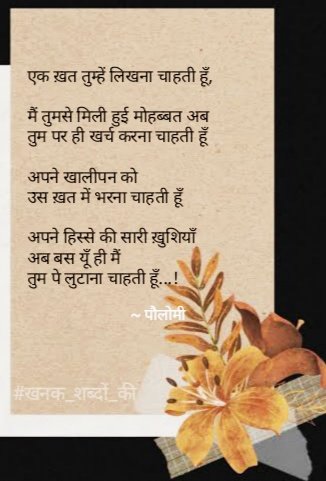 एक ख़त तुम्हें लिखना चाहती हूँ,
मैं तुमसे मिली हुई मोहब्बत अब
तुम पर ही खर्च करना चाहती हूँ
अपने खालीपन को
उस ख़त में भरना चाहती हूँ
अपने हिस्से की सारी ख़ुशियाँ
अब बस यूँ ही मैं
तुम पे लुटाना चाहती हूँ...!
~ पौलोमी
#खनक_शब्दों_की